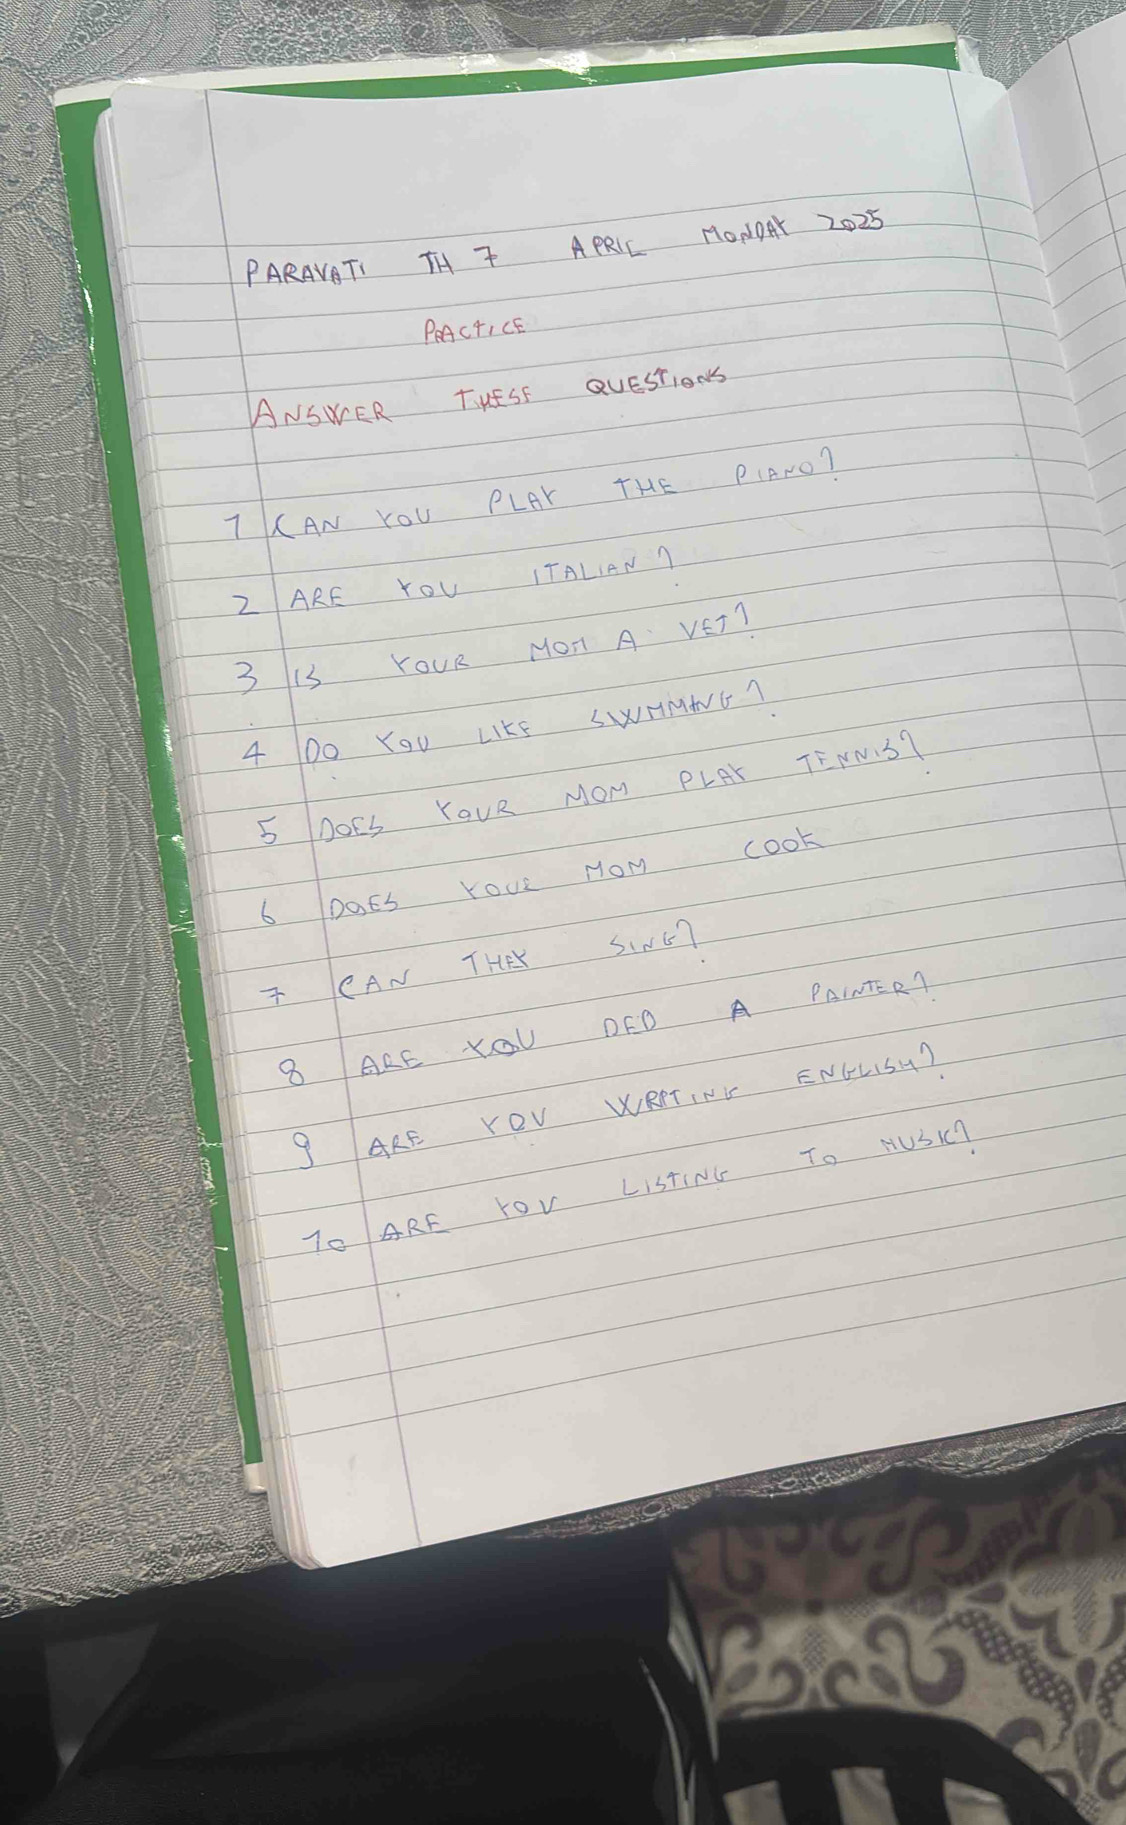 PARAVATI TH 7 APRIL MONDAY 2025
PRACTICE
ANSWER THESE QUESTIONS
1 CAN YOU PLAY THE PIANO?
2 ARE YOU ITALIAN?
3 IS YOUR MOM A VET?
4 DO YOU LIKE SIWMMING?
5 DOES YOUR MOM PLAY TENNIS?
6 DOES YOUR MOM COOK
7 CAN THEY SING?
8 ARE YOU DED A PAINTER?
9 ARE YOU WRPTING ENGLISH?
10 ARE YOU LISTING TO MUSIC?